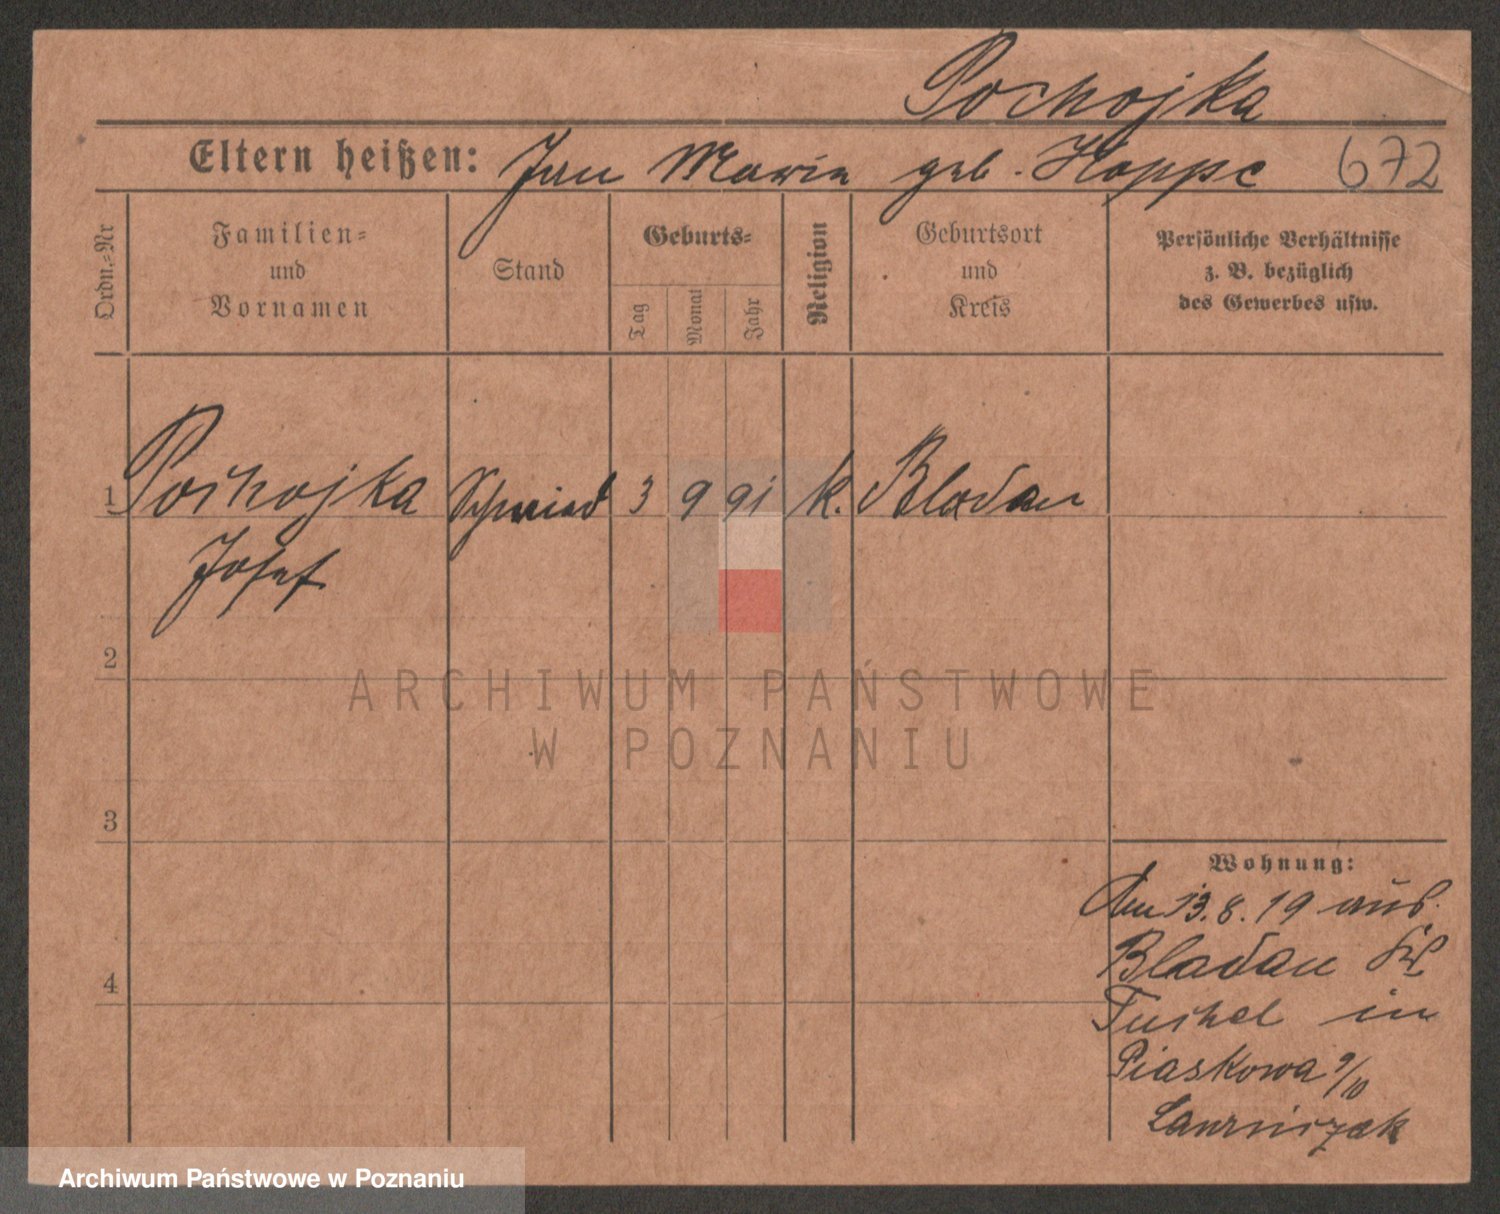 Pochojka
Eltern heißen: Jan Maria geb. Hoppe 672
Ordn.-Nr
Familien-
und
Vornamen
Stand
Geburts-
Tag
Monat
Jahr
Religion
Geburtsort
und
Kreis
Persönliche Verhältnisse
z. B. bezüglich
des Gewerbes usw.
1 Pochojka Schmied 3 9 91 k. Bladau
Josef
2
ARCHIWUM PAŃSTWOWE
W POZNANIU
3
Wohnung:
den 13.8.19 aus
Bladau
4
Tuchel in
Piaskowa 9/10
Archiwum Państwowe w Poznaniu